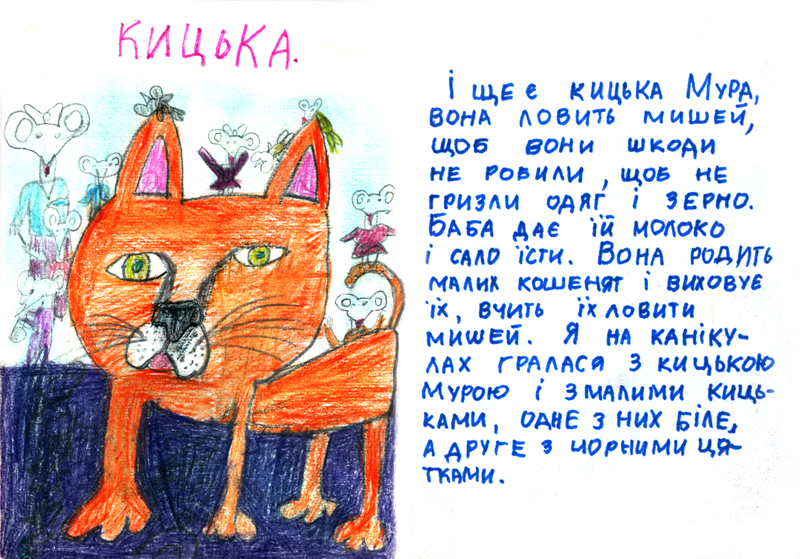 КИЦЬКА.
І ЩЕ Є КИЦЬКА МУРА,
ВОНА ЛОВИТЬ МИШЕЙ,
ЩОБ ВОНИ ШКОДИ
НЕ РОБИЛИ, ЩОБ НЕ
ГРИЗЛИ ОДЯГ І ЗЕРНО.
БАБА ДАЄ ЇЙ МОЛОКО
І САЛО ЇСТИ. ВОНА РОДИТЬ
МАЛИХ КОШЕНЯТ І ВИХОВУЄ
ЇХ, ВЧИТЬ ЇХ ЛОВИТИ
МИШЕЙ. Я НА КАНІКУ-
ЛАХ ГРАЛАСЯ З КИЦЬКОЮ
МУРОЮ І З МАЛИМИ КИЦЬ-
КАМИ, ОДНЕ З НИХ БІЛЕ,
А ДРУГЕ З ЧОРНИМИ ЦЯ-
ТКАМИ.